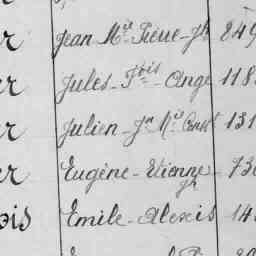 r Jean Mie Pierre Jh 849
r Jules Fçois Ange 118
r Julien Jn Mie Const 131
er Eugène Etienne Jh 730
ois Emile Alexis 14